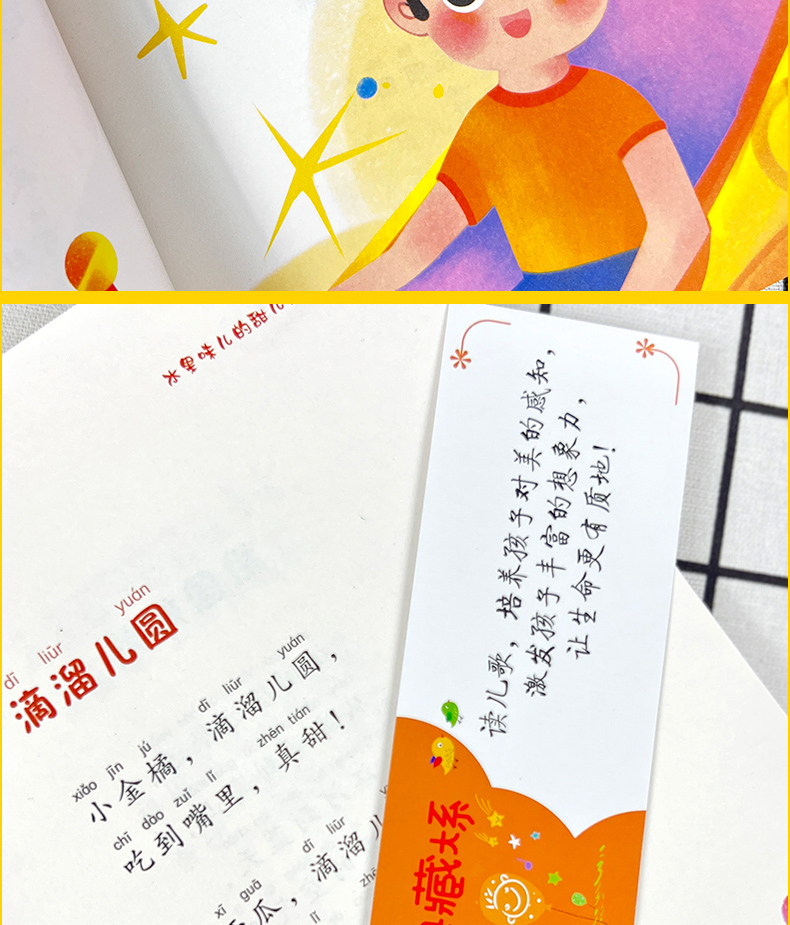 水果味儿的甜儿
dī liūr yuán
滴溜儿圆
xiǎo jīn jú dī liūr yuán
小金橘，滴溜儿圆，
chī dào zuǐ lǐ zhēn tián
吃到嘴里，真甜！
xī guā dī liūr
瓜，滴溜儿
lǐ
读儿歌，培养孩子对美的感知，
激发孩子丰富的想象力，
让生命更有质地！
藏大系